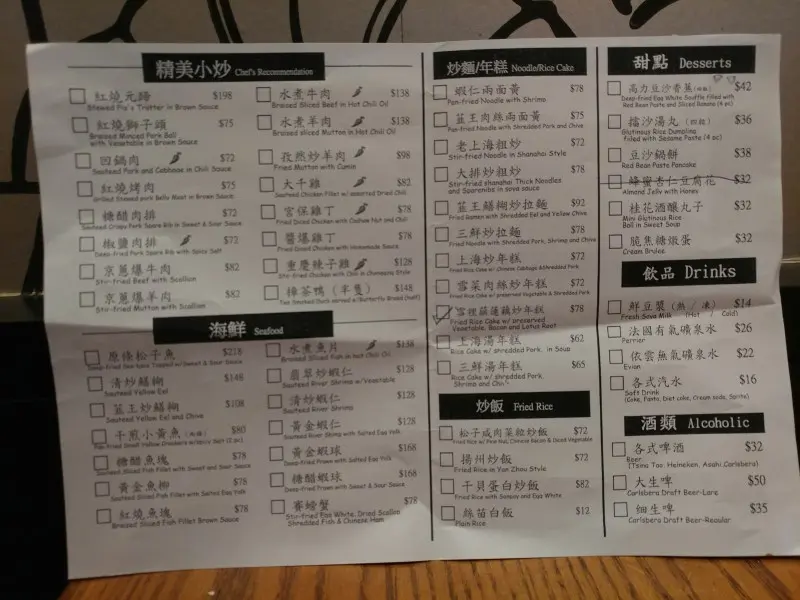 精美小炒 Chef's Reccomendation
紅燒元蹄 $198
Stewed Pig's Trotter in Brown Sauce
紅燒獅子頭 $75
Braised Minced Pork Ball
with Vegetable in Brown Sauce
回鍋肉 $72
Sauteed Pork and Cabbage in Chili Sauce
紅燒烤肉 $75
Grilled Stewed pork Belly Meat in Brown Sauce
糖醋肉排 $72
Sauteed Crispy Pork Spare Rib in Sweet & Sour Sauce
椒鹽肉排 $72
Deep-Fried Pork Spare Rib with Spicy Salt
京蔥爆牛肉 $82
Stir-fried Beef with Scallion
京蔥爆羊肉 $82
Stir-fried Mutton with Scallion
水煮牛肉 $138
Braised Sliced Beef in Hot Chili Oil
水煮羊肉 $138
Braised sliced Mutton in Hot Chili Oil
孜然炒羊肉 $98
Fried Mutton with Cumin
大千雞 $82
Sauteed Chicken Fillet w/ assorted Dried Chili
宮保雞丁 $78
Fried Diced Chicken with Cashew Nut and Chili
醬爆雞丁 $78
Fried Diced Chicken with Homemade Sauce
重慶辣子雞 $128
Stir-fried Chicken with Chili in Chongqing Style
樟茶鴨 (半隻) $148
Tea Smoked Duck served w/Butterfly Bread (half)
海鮮 Seafood
原條松子魚 $218
Deep-Fried Sea-bass Topped w/ Sweet & Sour Sauce
清炒鱔糊 $148
Sauteed Yellow Eel
韮王炒鱔糊 $108
Sauteed Yellow Eel and Chive
干煎小黃魚 (兩條) $80
糖醋魚塊 $78
Sauteed Sliced Fish Fillet with Sweet and Sour Sauce
黃金魚柳 $78
Sauteed Sliced Fish Fillet with Salted Egg Yolk
紅燒魚塊 $78
Braised Sliced Fish Fillet Brown Sauce
水煮魚片 $138
Braised Sliced Fish in Hot Chili Oil
翡翠炒蝦仁 $128
Sauteed River Shrimp w/Vegetable
清炒蝦仁 $128
Sauteed River Shrimp
黃金蝦仁 $128
Sauteed River Shrimp with Salted Egg Yolk
黃金蝦球 $168
Deep-Fried Prawn with Salted Egg Yolk
糖醋蝦球 $168
Deep-Fried Prawn with Sweet & Sour Sauce
賽螃蟹 $78
Stir-fried Egg White, Dried Scallop
Shredded Fish & Chinese Ham
炒麵/年糕 Noodle/Rice Cake
蝦仁兩面黃 $78
Pan-fried Noodle with Shrimp
韮王肉絲兩面黃 $75
Pan-fried Noodle with Shredded Pork and Chive
老上海粗炒 $72
Stir-fried Noodle in Shanghai Style
大排炒粗炒 $78
Stir-fried shanghai Thick Noodles
and Spareribs in soya sauce
韮王鱔糊炒拉麵 $92
Fried Ramen with Shredded Eel and Yellow Chive
三鮮炒拉麵 $78
Fried Noodle with Shredded Pork, Shrimp and Chive
上海炒年糕 $72
Fried Rice Cake w/ Chinese Cabbage &Shredded Pork
雪菜肉絲炒年糕 $72
Fried Rice Cake w/ preserved Vegetable & Shredded Pork
雪裡蕻蓮藕炒年糕 $78
Fried Rice Cake w/ preserved
Vegetable, Bacon and Lotus Root
上海湯年糕 $62
Rice Cake w/ shredded Pork, in Soup
三鮮湯年糕 $65
Rice Cake w/ shredded Pork,
Shrimp and Chive
炒飯 Fried Rice
松子咸肉菜粒炒飯 $72
Fried Rice w/ Pine Nut, Chinese Bacon & Diced Vegetable
揚州炒飯 $72
Fried Rice in Yan Zhou Style
干貝蛋白炒飯 $82
Fried Rice with Conpoy and Egg White
絲苗白飯 $12
Plain Rice
甜點 Desserts
高力豆沙香蕉 $42
Deep-fried Egg White Souffle filled with
Red Bean Paste and Sliced Banana (4 pc)
擂沙湯丸 (四粒) $36
Glutinous Rice Dumpling
filled with Sesame Paste (4 pc)
豆沙鍋餅 $38
Red Bean Paste Pancake
蜂蜜杏仁豆腐花 $32
Almond Jelly with Honey
桂花酒釀丸子 $32
Mini Glutinous Rice
Ball in Sweet Soup
脆焦糖燉蛋 $32
Cream Brulee
飲品 Drinks
鮮豆漿 (熱 / 凍) $14
Fresh Soya Milk (Hot / Cold)
法國有氣礦泉水 $26
Perrier
依雲無氣礦泉水 $22
Evian
各式汽水 $16
Soft Drink
(Coke, Fanta, Diet coke, Cream soda, Sprite)
酒類 Alcoholic
各式啤酒 $32
Beer
(Tsing Tao, Heineken, Asahi, Carlsberg)
大生啤 $50
Carlsberg Draft Beer-Large
細生啤 $35
Carlsberg Draft Beer-Regular